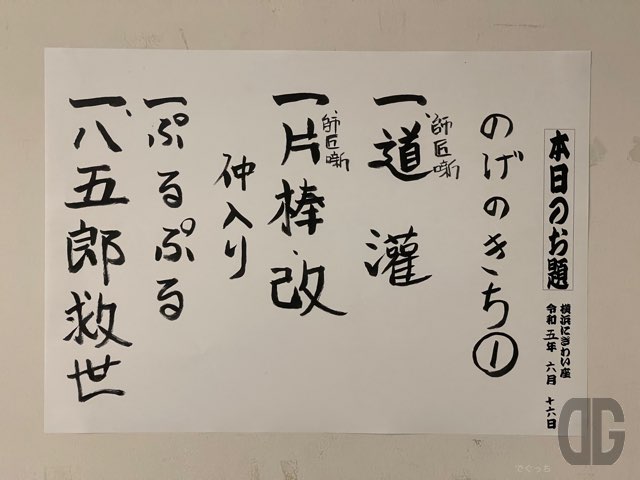 本日のお題
横浜にぎわい座
令和五年 六月 十六日
のげのきち①
一、道灌
師匠噺
一、片棒・改
師匠噺
仲入り
一、ぷるぷる
一、八五郎救世
DG
でぐっち